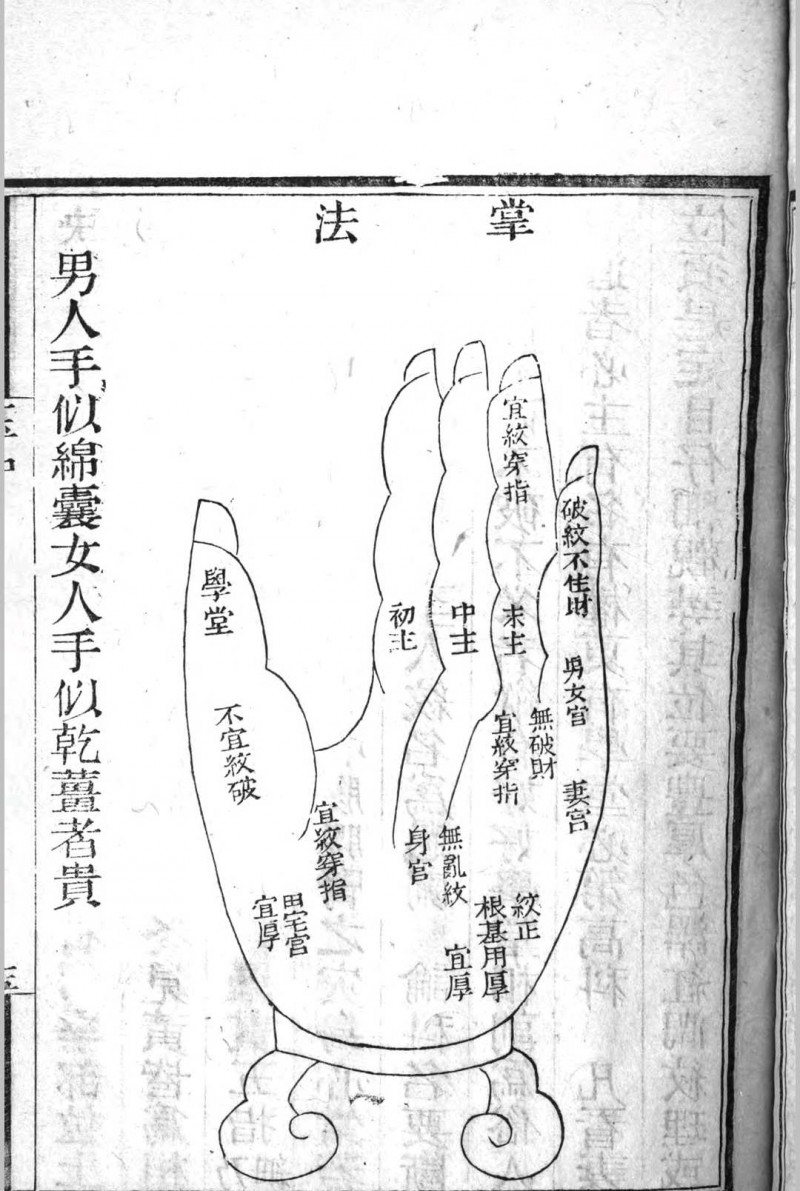 掌法
宜紋穿指
破紋不住財
男女宮
妻宮
無破財
末主
宜紋穿指
中主
初主
紋正
根基用厚
宜厚
無亂紋
身宮
學堂
不宜紋破
宜紋穿指
田宅宮
宜厚
男人手似綿囊女人手似乾薑者貴